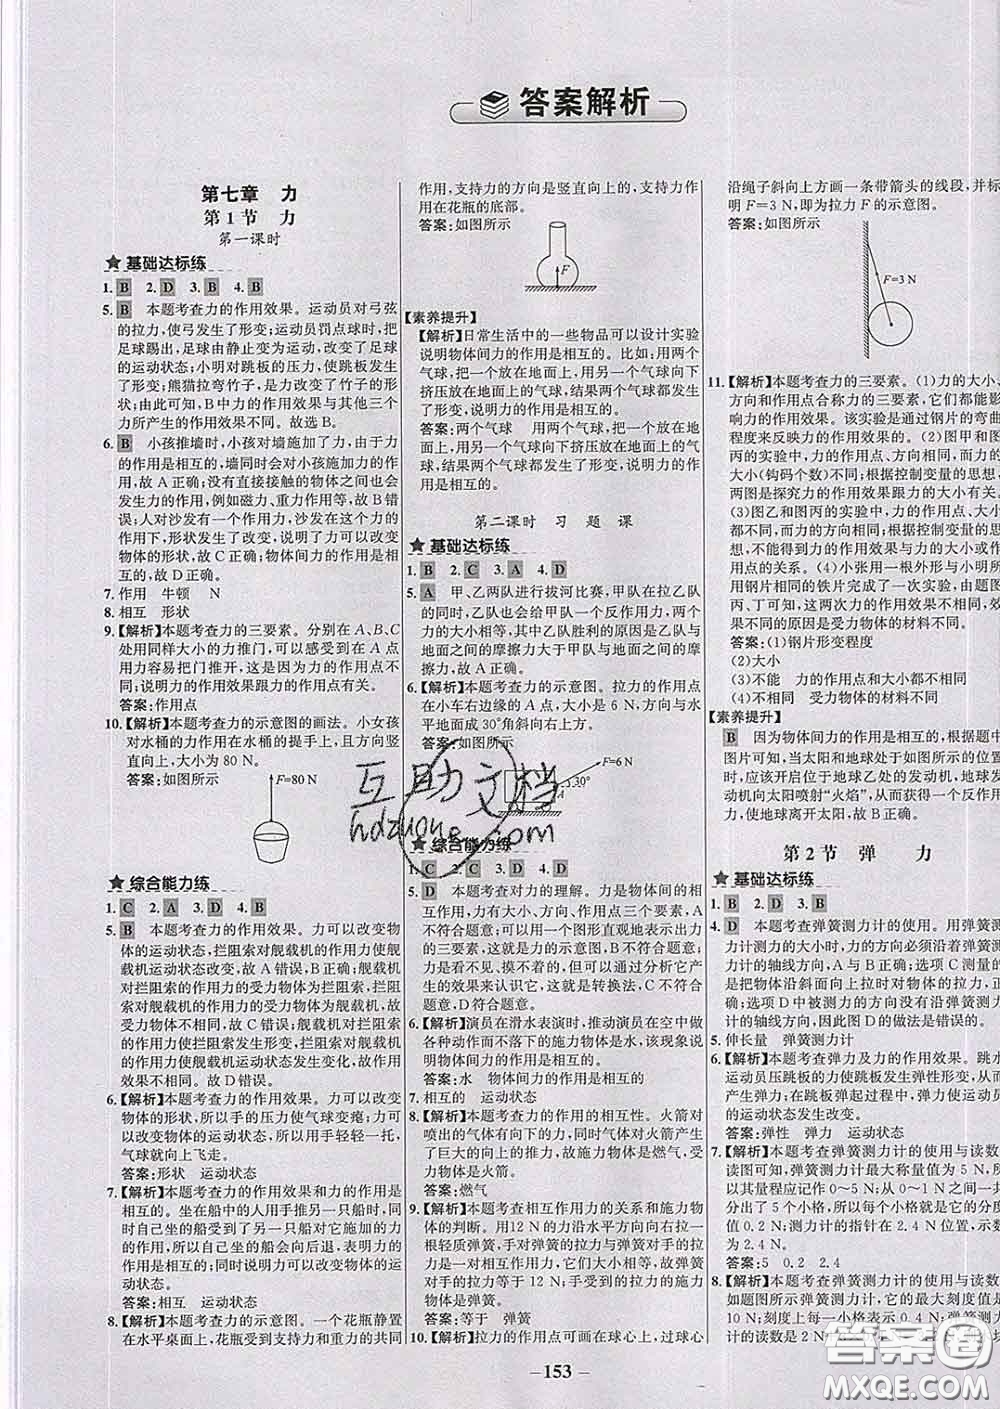 答案解析
第七章 力
第1节 力
第一课时
基础达标练
1. B 2. D 3. B 4. B
5. B 本题考查力的作用效果。运动员对弓弦
的拉力,使弓发生了形变;运动员罚点球时,把
足球踢出,足球由静止变为运动,改变了足球
的运动状态;小明对跳板的压力,使跳板发生
了形变;熊猫拉弯竹子,是力改变了竹子的形
状。由此可知,B中力的作用效果与其他三个
力所产生的作用效果不同。故选B。
6. B 小孩推墙时,小孩对墙施加了力,由于力
的作用是相互的,墙同时会对小孩施加力的作
用,故A正确;没有直接接触的物体之间也会
发生力的作用,例如磁力、重力作用等,故B错
误;人对沙发有一个作用力,沙发在这个力的
作用下,形状发生了变化,说明了力可以改变
物体的形状,故C正确;物体间力的作用是相
互的,故D正确。
7. 作用 牛顿 N
8. 相互 形状
9.【解析】本题考查力的三要素。分别在A、B、C
处用同样大小的力推门,可以感受到在A点
用力容易把门推开,这是因为力的作用点不
同;说明力的作用效果跟力的作用点有关。
答案:作用点
10.【解析】本题考查力的示意图的画法。小女孩
对水桶的力作用在水桶的提手上,且方向竖
直向上,大小为80 N。
答案:如图所示
F=80 N
综合能力练
1. C 2. A 3. D 4. B
5. B 本题考查力的作用效果。力可以改变物
体的运动状态,拦阻索对舰载机的力使舰载
机运动状态改变,故A错误,B正确;舰载机
对拦阻索的作用力的受力物体为拦阻索,拦阻
索对舰载机的作用力的受力物体为舰载机,故
C错误;舰载机对拦阻索的力使拦阻索
的力使舰载机运动状态发生变化,故作用
效果不同。故D错误。
6.【解析】本题考查力的作用效果。力可以改变
物体的形状,所以手的压力使气球变瘪;力可
以改变物体的运动状态,所以用手轻轻一托,
气球就向上飞走。
答案:形状 运动状态
7.【解析】本题考查力的作用效果和力的作用是
相互的。坐在船中的人用手推另一只船时,同
时自己坐的船受到了另一只船对它施加的力
的作用,所以自己坐的船会向后退,表明力的
作用是相互的,同时说明力可以改变物体的运
动状态。
答案:相互 运动状态
8.【解析】本题考查力的示意图。一个花瓶静置
在水平桌面上,花瓶受到支持力和重力的共同
作用,支持力的方向是竖直向上的,支持力作
用在花瓶的底部。
答案:如图所示
F
【素养提升】
【解析】日常生活中的一些物品可以设计实验
说明物体间力的作用是相互的。比如:用两个
气球,把一个放在地面上,用另一个气球向下
挤压放在地面上的气球,结果两个气球都发生
了形变,说明力的作用是相互的。
答案:两个气球 用两个气球,把一个放在地
面上,用另一个气球向下挤压放在地面上的气
球,结果两个气球都发生了形变,说明力的作
用是相互的。
第二课时 习题课
基础达标练
1. B 2. C 3. A 4. D
5. A 甲、乙两队进行拔河比赛,甲队在拉乙队
的同时,乙队也会给甲队一个反作用力,两个
力的大小相等,其中乙队胜利的原因是乙队与
地面之间的摩擦力大于甲队与地面之间的摩
擦力,故A正确。
6.【解析】本题考查力的示意图。拉力的作用点
在小车右边缘的A点,大小是6 N,方向与水
平地面成30°角斜向右上方。
答案:如图所示
F=6 N
30°
A
综合能力练
1. C 2. C 3. D 4. D
5. D 本题考查对力的理解。力是物体间的相
互作用,力有大小、方向、作用点三个要素,A不
符合题意;可以用一个图形直观地表示出力的
三个要素,这就是力的示意图,B不符合题意;力
是看不见、摸不着的,但可以通过分析它产
生的效果来认识它,这就是转换法,C不符合
题意,D符合题意。
6.【解析】演员在滑水表演时,推动演员在空中做
各种动作而不落下的施力物体是水,该现象说
明物体间力的作用是相互的。
答案:水 物体间力的作用是相互的
7. 相互的 运动状态
8.【解析】本题考查力的作用的相互性。火箭对
喷出的气体有向下的力,同时气体对火箭产生
了巨大的向上的推力,故施力物体是燃气,受
力物体是火箭。
答案:燃气
9.【解析】本题考查相互作用力的关系和施力物
体的判断。用12 N的力沿水平方向向右拉一
根轻质弹簧,手受到的弹簧的拉力与弹簧对手的拉力
是一对相互作用力,它们大小相等,故弹簧对
手的拉力等于12 N;手受到的拉力的施力
物体是弹簧。
答案:等于 弹簧
10.【解析】拉力的作用点可画在球心上,过球心
沿绳子斜向上方画一条带箭头的线段,并标
明F=3 N,即为拉力F的示意图。
答案:如图所示
F=3 N
11.【解析】本题考查力的三要素。(1)力的大小、
方向和作用点合称力的三要素,它们都能影
响力的作用效果。该实验是通过钢片的弯曲
程度来反映力的作用效果的。(2)图甲和图
丙的实验中,力的作用点、方向相同,而力的
大小(钩码个数)不同;根据控制变量的思想,
两图是探究力的作用效果与力的大小有关。
(3)图乙和图丙的实验中,力的大小和作用点
都不同,而力的方向相同;根据控制变量的思
想,不能得出力的作用效果与力的大小或作
用点的关系。(4)小张用一根外形与小明所用
钢片相同的铁片完成了一次实验,由题图
丙、丁可知,力的作用效果不相同,产生这种不
同的原因是受力物体的材料不同。
答案:(1)钢片形变程度
(2)大小
(3)不能 力的作用点和大小都不相同
(4)不相同 受力物体的材料不同
【素养提升】
B 因为物体间力的作用是相互的,根据题中
可知,当太阳和地球处于如图所示的位置
时,应该开启位于地球乙处的发动机,地球发
动机向太阳喷射“火焰”,会获得一个反作用力,
使地球离开太阳,故B正确。
第2节 弹力
基础达标练
1. B 2. D 3. B
4. D 本题考查弹簧测力计的使用。用弹簧
测力计测力的大小时,力的方向必须沿着弹簧
测力计的轴线方向,A与B正确;选项C测量的
是把物体沿斜面向上拉时对物体的拉力,正
确;选项D中被测力的方向没有沿弹簧测力
计的轴线方向,因此图D的做法是错误的。
5. 伸长量 弹簧测力计
6.【解析】本题考查弹力及力的作用效果。跳水
运动员压跳板的力使跳板发生弹性形变,从而
产生弹力;在跳板弹起过程中,弹力使运动员
的运动状态发生改变。
答案:弹性 弹力 运动状态
7.【解析】本题考查弹簧测力计的使用与读数。
读图可知,弹簧测力计最大称量值为5 N,所
以其量程应记作0~5 N;从0~1 N,一共
分出了5个小格,所以每个小格代表的分度
值0.2 N;测力计的指针在2.4 N位置,示数
为2.4 N。
答案:5 0.2 2.4
8.【解析】本题考查弹簧测力计的使用与读数。
如题图所示,弹簧测力计的量程是
10 N;刻度上每一小格表示0.4 N;弹簧测力
计的读数是2 N
153
互助文档
hdzuoye.com
答案圈
MXQE.COM